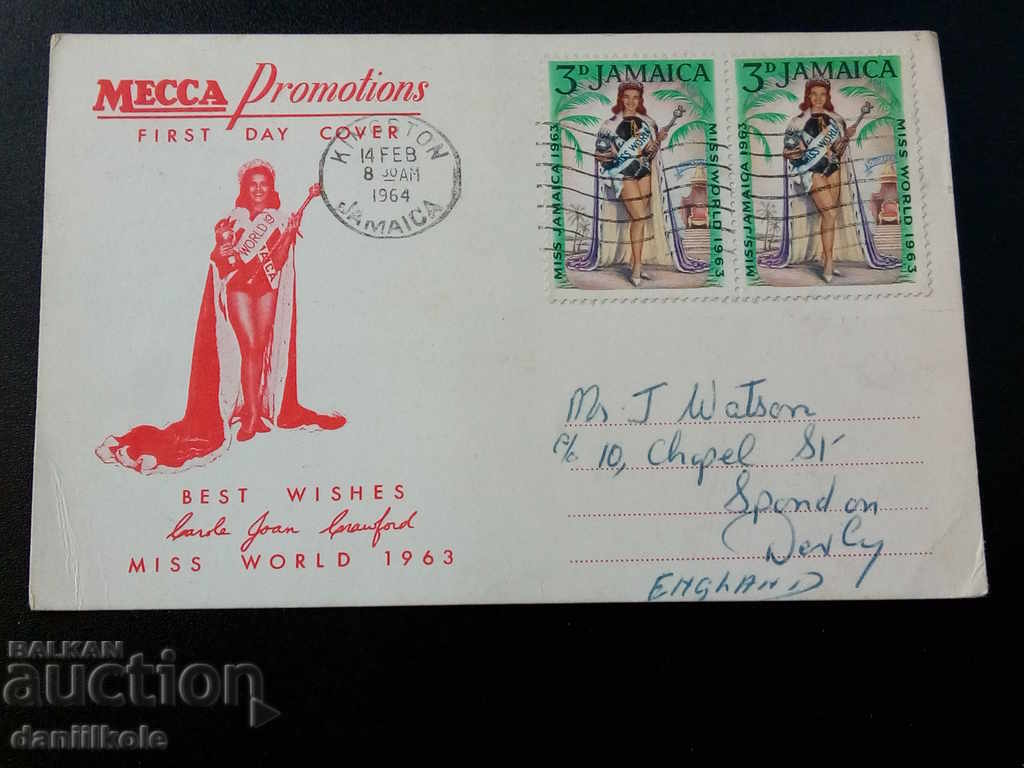 MECCA Promotions
FIRST DAY COVER
KINGSTON
14 FEB
8 30 AM
1964
JAMAICA
3D JAMAICA
MISS JAMAICA 1963
MISS WORLD 1963
MISS WORLD
3D JAMAICA
MISS JAMAICA 1963
MISS WORLD 1963
MISS WORLD
WORLD 19
AICA
BEST WISHES
Carole Joan Crawford
MISS WORLD 1963
J Watson
10, Chapel St
Spondon
Derby
ENGLAND
BALKAN
auction
daniilkole